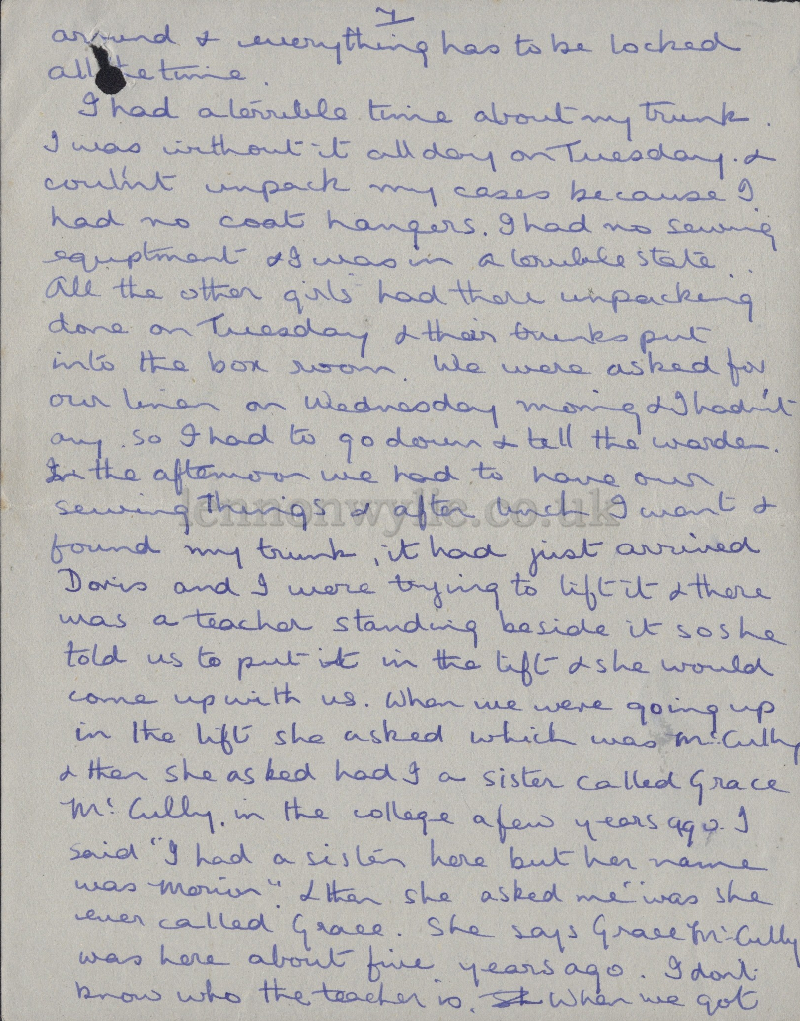 7
around & everything has to be locked
all the time.
I had a terrible time about my trunk.
I was without it all day on Tuesday. &
could'nt unpack my cases because I
had no coat hangers. I had no sewing
equiptment & I was in a terrible state..
All the other girls had there unpacking
done on Tuesday & their trunks put
into the box room. We were asked for
our linen on Wednesday moring & I had'nt
any. so I had to go down & tell the warden.
In the afternoon we had to have our
sewing things & after lunch I want &
found my trunk, it had just arrived
Doris and I were trying to lift it & there
was a teacher standing beside it so she
told us to put it in the lift & she would
come up with us. When we were going up
in the lift she asked which was McCully
& then she asked had I a sister called Grace
McCully. in the college a few years ago. I
said "I had a sister here but her name
was Morion". & then she asked me "was she
ever called Grace. She says Grace McCully
was here about five years ago. I don't
know who the teacher is. When we got
lennonwylie.co.uk